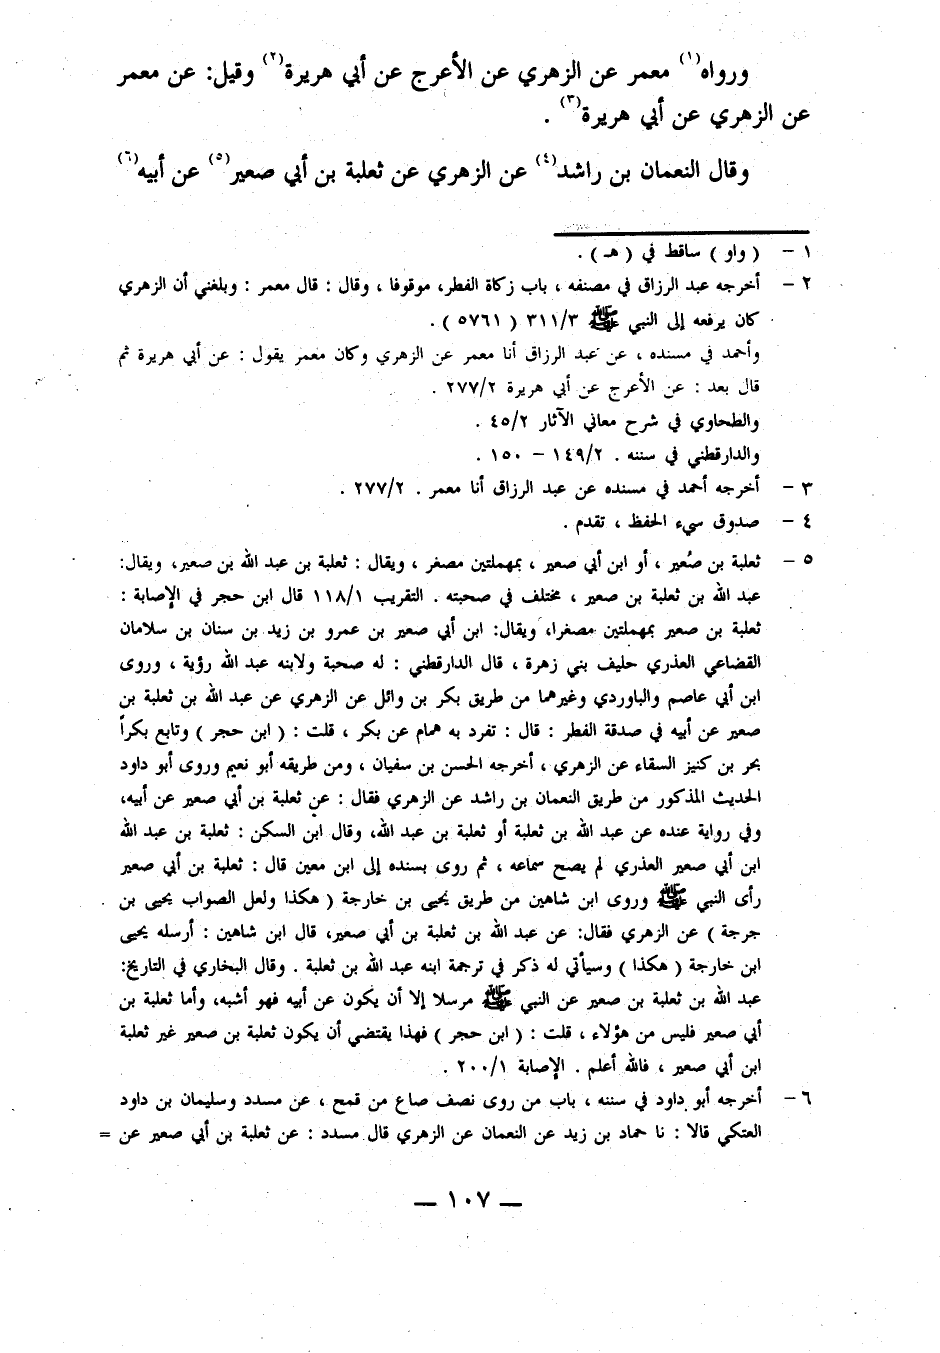 ورواه(١) معمر عن الزهري عن الأعرج عن أبي هريرة(٢) وقيل: عن معمر
عن الزهري عن أبي هريرة(٣) .
وقال النعمان بن راشد(٤) عن الزهري عن ثعلبة بن أبي صعير(٥) عن أبيه(٦)
١ – ( واو ) ساقط في ( هـ ) .
٢ – أخرجه عبد الرزاق في مصنفه ، باب زكاة الفطر، موقوفا ، وقال : قال معمر : وبلغني أن الزهري
كان يرفعه إلى النبي ﷺ ٣١١/٣ ( ٥٧٦١ ) .
وأحمد في مسنده ، عن عبد الرزاق أنا معمر عن الزهري وكان معمر يقول : عن أبي هريرة ثم
قال بعد : عن الأعرج عن أبي هريرة ٢٧٧/٢ .
والطحاوي في شرح معاني الآثار ٤٥/٢ .
والدارقطني في سننه . ١٤٩/٢ – ١٥٠ .
٣ – أخرجه أحمد في مسنده عن عبد الرزاق أنا معمر . ٢٧٧/٢ .
٤ – صدوق سيء الحفظ ، تقدم .
٥ – ثعلبة بن صُعير ، أو ابن أبي صعير ، بمهملتين مصغر ، ويقال : ثعلبة بن عبد الله بن صعير، ويقال:
عبد الله بن ثعلبة بن صعير ، مختلف في صحبته . التقريب ١١٨/١ قال ابن حجر في الإصابة :
ثعلبة بن صعير بمهملتين مصغرا، ويقال: ابن أبي صعير بن عمرو بن زيد بن سنان بن سلامان
القضاعي العذري حليف بني زهرة ، قال الدارقطني : له صحبة ولابنه عبد الله رؤية ، وروى
ابن أبي عاصم والباوردي وغيرهما من طريق بكر بن وائل عن الزهري عن عبد الله بن ثعلبة بن
صعير عن أبيه في صدقة الفطر : قال : تفرد به همام عن بكر ، قلت : ( ابن حجر ) وتابع بكراً
بحر بن كنيز السقاء عن الزهري ، أخرجه الحسن بن سفيان ، ومن طريقه أبو نعيم وروى أبو داود
الحديث المذكور من طريق النعمان بن راشد عن الزهري فقال : عن ثعلبة بن أبي صعير عن أبيه،
وفي رواية عنده عن عبد الله بن ثعلبة أو ثعلبة بن عبد الله، وقال ابن السكن : ثعلبة بن عبد الله
ابن أبي صعير العذري لم يصح سماعه ، ثم روى بسنده إلى ابن معين قال : ثعلبة بن أبي صعير
رأى النبي ﷺ وروى ابن شاهين من طريق يحيى بن خارجة ( هكذا ولعل الصواب يحيى بن
جرجة ) عن الزهري فقال: عن عبد الله بن ثعلبة بن أبي صعير، قال ابن شاهين : أرسله يحيى
ابن خارجة ( هكذا ) وسيأتي له ذكر في ترجمة ابنه عبد الله بن ثعلبة . وقال البخاري في التاريخ:
عبد الله بن ثعلبة بن صعير عن النبي ﷺ مرسلا إلا أن يكون عن أبيه فهو أشبه، وأما ثعلبة بن
أبي صعير فليس من هؤلاء ، قلت : ( ابن حجر ) فهذا يقتضي أن يكون ثعلبة بن صعير غير ثعلبة
ابن أبي صعير ، فالله أعلم . الإصابة ٢٠٠/١ .
٦ – أخرجه أبو داود في سننه ، باب من روى نصف صاع من قمح ، عن مسدد وسليمان بن داود
العتكي قالا : نا حماد بن زيد عن النعمان عن الزهري قال مسدد : عن ثعلبة بن أبي صعير عن =
— ١٠٧ —